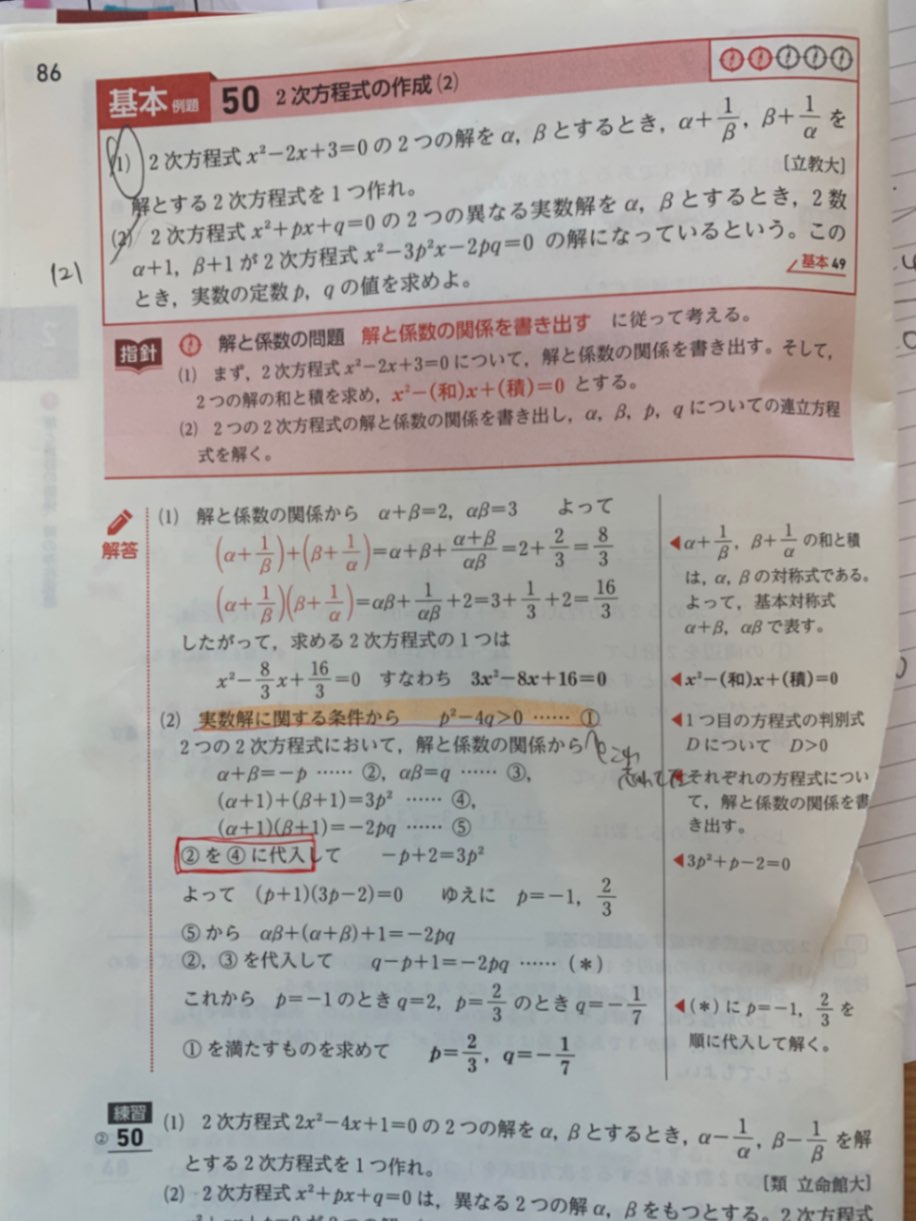 86
基本 例題 50 2次方程式の作成(2)
(1) 2次方程式 x²−2x+3=0 の2つの解を α, β とするとき, α+1/β, β+1/α を
解とする2次方程式を1つ作れ。 [立教大]
(2) 2次方程式 x²+px+q=0 の2つの異なる実数解を α, β とするとき, 2数
α+1, β+1 が2次方程式 x²−3p²x−2pq=0 の解になっているという。この
とき, 実数の定数 p, q の値を求めよ。
基本 49
(2)
指針 解と係数の問題 解と係数の関係を書き出す に従って考える。
(1) まず, 2次方程式 x²−2x+3=0 について, 解と係数の関係を書き出す。そして,
2つの解の和と積を求め, x²−(和)x+(積)=0 とする。
(2) 2つの2次方程式の解と係数の関係を書き出し, α, β, p, q についての連立方程
式を解く。
解答
(1) 解と係数の関係から α+β=2, αβ=3 よって
(α+1/β)+(β+1/α)=α+β+(α+β)/αβ=2+2/3=8/3
(α+1/β)(β+1/α)=αβ+1/αβ+2=3+1/3+2=16/3
したがって, 求める2次方程式の1つは
x²−8/3x+16/3=0 すなわち 3x²−8x+16=0
◀α+1/β, β+1/α の和と積
は, α, β の対称式である。
よって, 基本対称式
α+β, αβ で表す。
◀x²−(和)x+(積)=0
(2) 実数解に関する条件から p²−4q>0 …… ①
2つの2次方程式において, 解と係数の関係から
α+β=−p …… ②, αβ=q …… ③,
(α+1)+(β+1)=3p² …… ④,
(α+1)(β+1)=−2pq …… ⑤
②を④に代入して −p+2=3p²
よって (p+1)(3p−2)=0 ゆえに p=−1, 2/3
⑤から αβ+(α+β)+1=−2pq
②, ③を代入して q−p+1=−2pq …… (*)
これから p=−1 のとき q=2, p=2/3 のとき q=−1/7
①を満たすものを求めて p=2/3, q=−1/7
◀1つ目の方程式の判別式
D について D>0
◀それぞれの方程式につい
て, 解と係数の関係を書
き出す。
◀3p²+p−2=0
◀(*)に p=−1, 2/3 を
順に代入して解く。
練習
② 50
(1) 2次方程式 2x²−4x+1=0 の2つの解を α, β とするとき, α−1/α, β−1/β を解
とする2次方程式を1つ作れ。 [類 立命館大]
(2) 2次方程式 x²+px+q=0 は, 異なる2つの解 α, β をもつとする。2次方程式